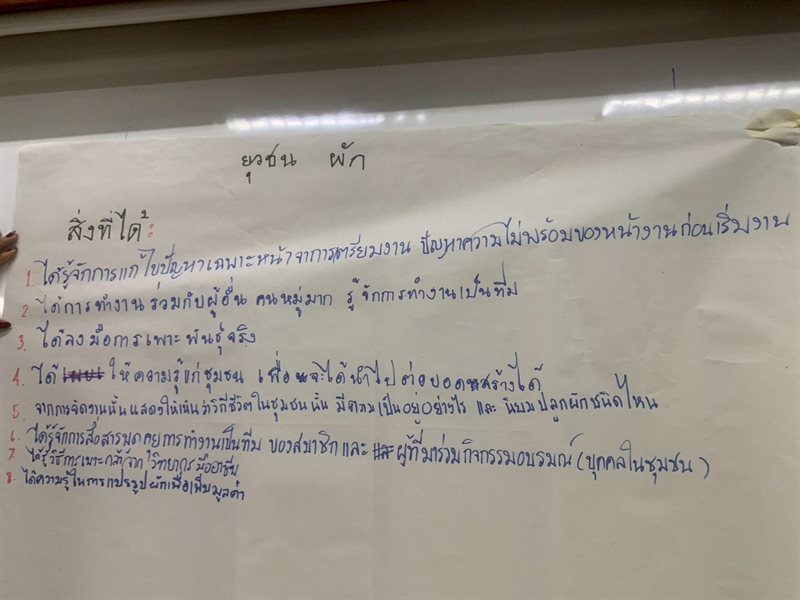 ยุวชน ผัก
สิ่งที่ได้:
1. ได้รู้จักการแก้ไขปัญหาเฉพาะหน้าจาการเตรียมงาน ปัญหาความไม่พร้อมของหน้างานก่อนเริ่มงาน
2. ได้การทำงานร่วมกับผู้อื่น คนหมู่มาก รู้จักการทำงานเป็นทีม
3. ได้ลงมือการเพาะพันธุ์จริง
4. ได้ ให้ความรู้แก่ชุมชน เพื่อจะได้นำไปต่อยอดสร้างได้
5. จากการจัดงานนั้นแสดงให้เห็นว่าวิถีชีวิตในชุมชนนั้น มีความเป็นอยู่อย่างไร และ นิยมปลูกผักชนิดไหน
6. ได้รู้จักการสื่อสารพูดคุยการทำงานเป็นทีม ของสมาชิกและ ผู้ที่มาร่วมกิจกรรมอบรมณ์ (บุคคลในชุมชน)
7. ได้รู้วิธีการเพาะกล้าจากวิทยากรมืออาชีพ
8. ได้ความรู้ในการแปรรูปผักเพื่อเพิ่มมูลค่า